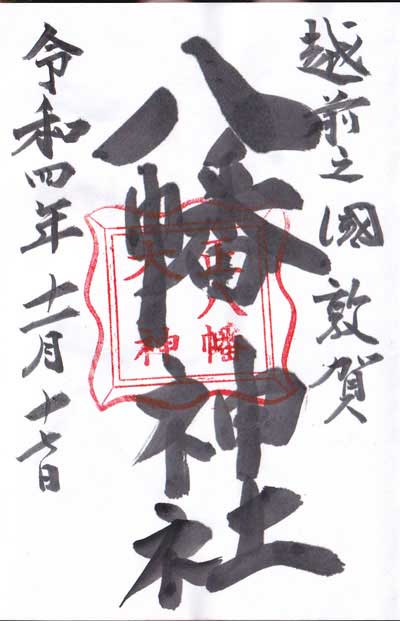 越前之國 敦賀
八幡神社
正八幡
大神
令和四年十一月十七日